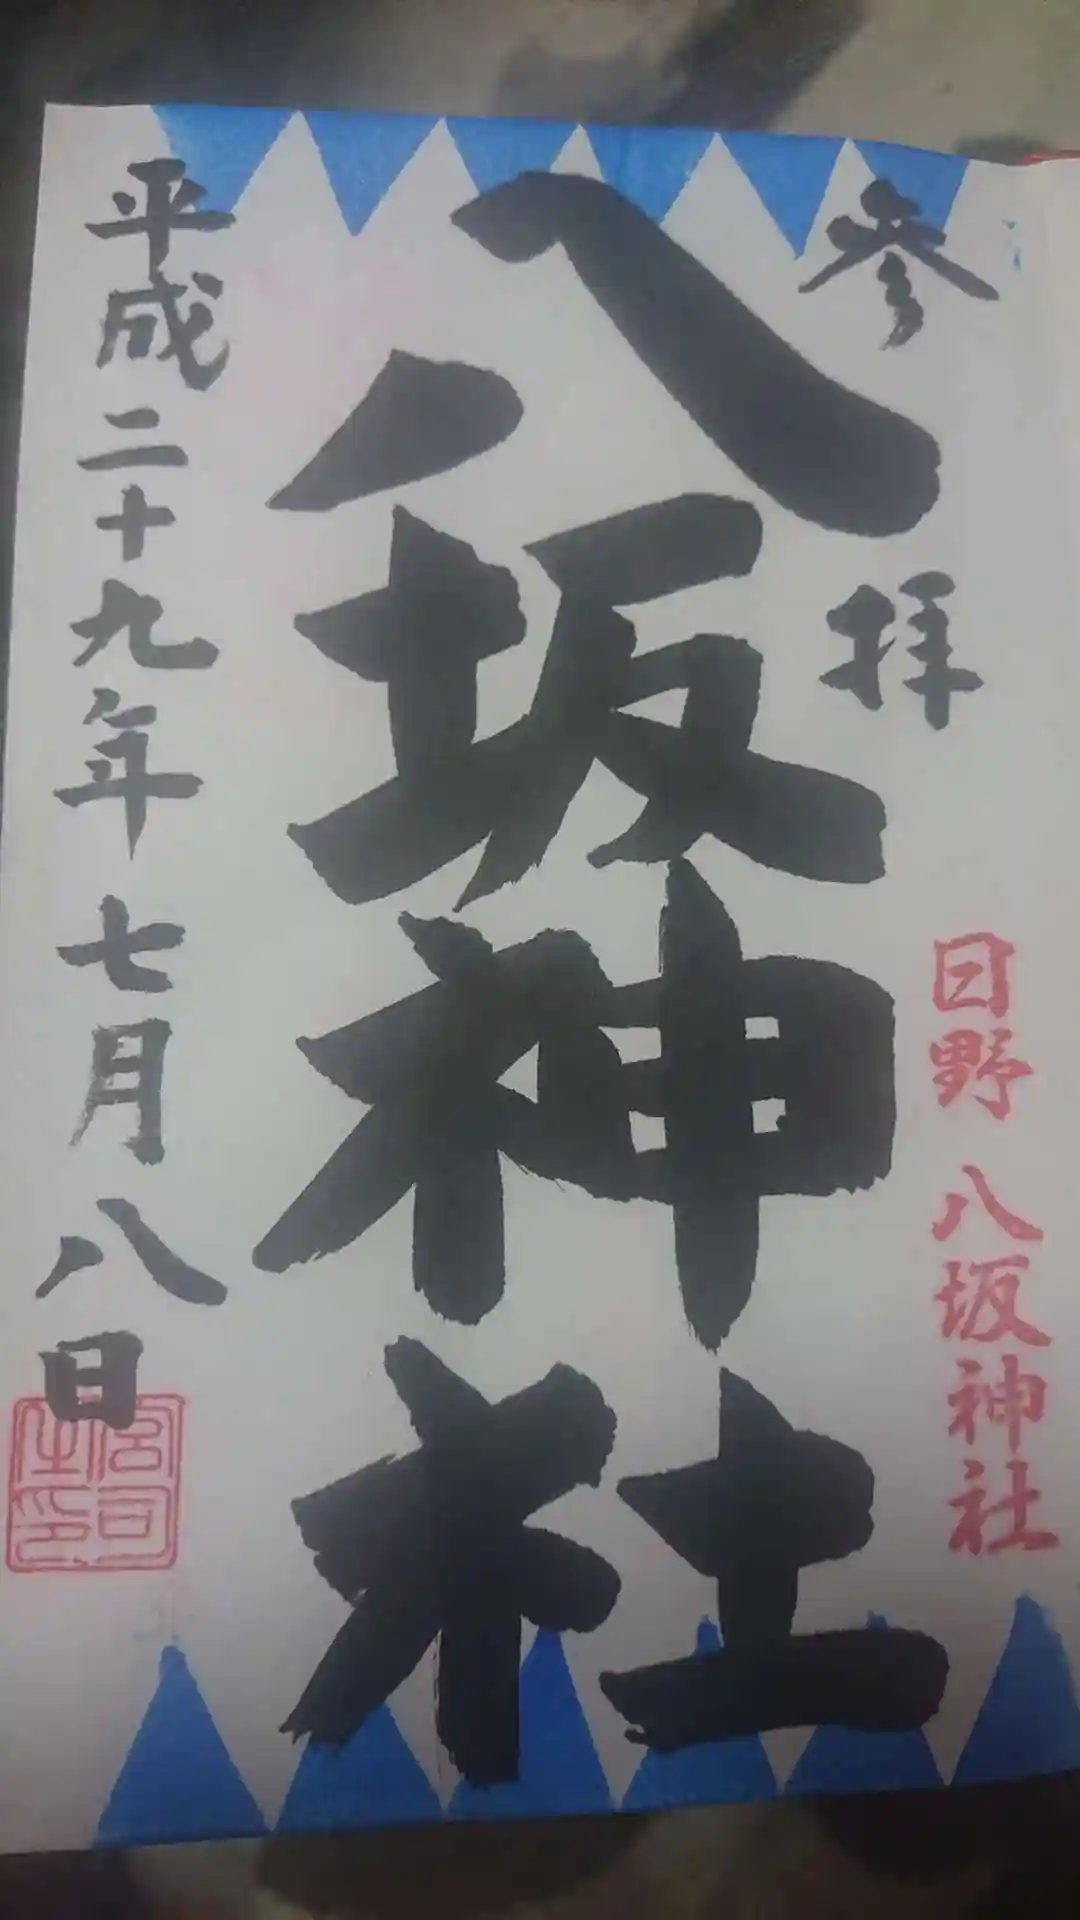 参拝
日野 八坂神社
八坂神社
平成二十九年七月八日
宮司
之印